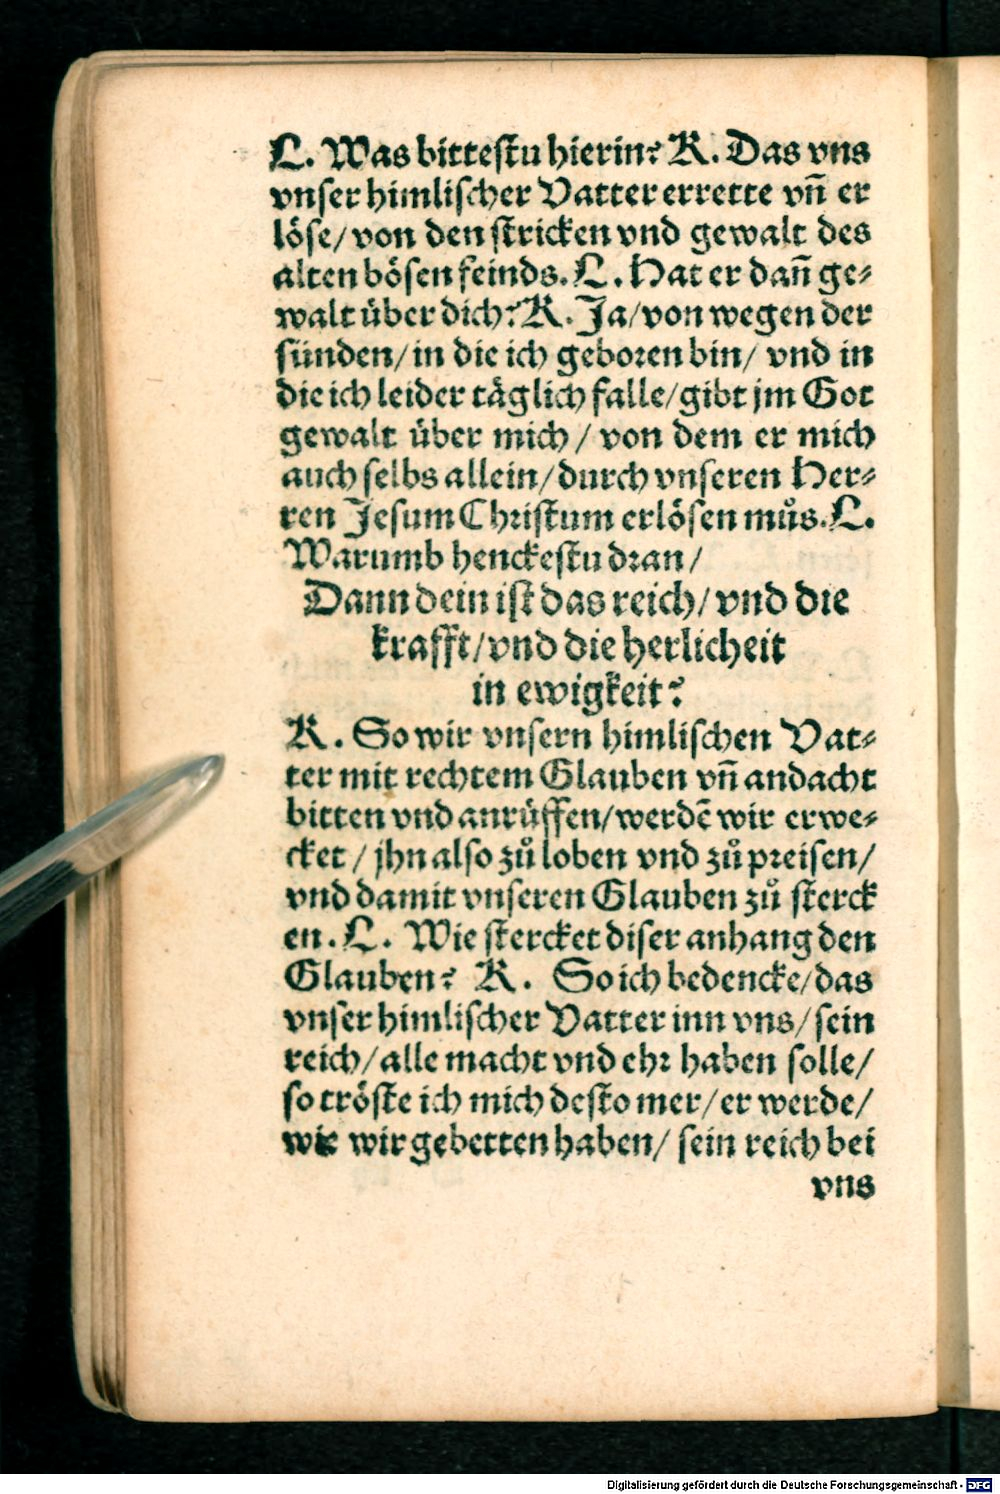 L. Was bittestu hierin? K. Das vns
vnser himlischer Vatter errette vn̄ er
löse/ von den stricken vnd gewalt des
alten bösen feinds. L. Hat er dan̄ ge⸗
walt über dich? K. Ja/ von wegen der
sünden/ in die ich geboren bin/ vnd in
die ich leider täglich falle/ gibt jm Got
gewalt über mich/ von dem er mich
auch selbs allein/ durch vnseren Her⸗
ren Jesum Christum erlösen můs. L.
Warumb henckestu dran/
Dann dein ist das reich/ vnd die
krafft/ vnd die herlicheit
in ewigkeit?
K. So wir vnsern himlischen Vat⸗
ter mit rechtem Glauben vn̄ andacht
bitten vnd anrüffen/ werdē wir erwe⸗
cket/ jhn also zů loben vnd zů preisen/
vnd damit vnseren Glauben zů sterck
en. L. Wie stercket diser anhang den
Glauben? K. So ich bedencke/ das
vnser himlischer Vatter inn vns/ sein
reich/ alle macht vnd ehr haben solle/
so tröste ich mich desto mer/ er werde/
wie wir gebetten haben/ sein reich bei
vns
Digitalisierung gefördert durch die Deutsche Forschungsgemeinschaft - DFG